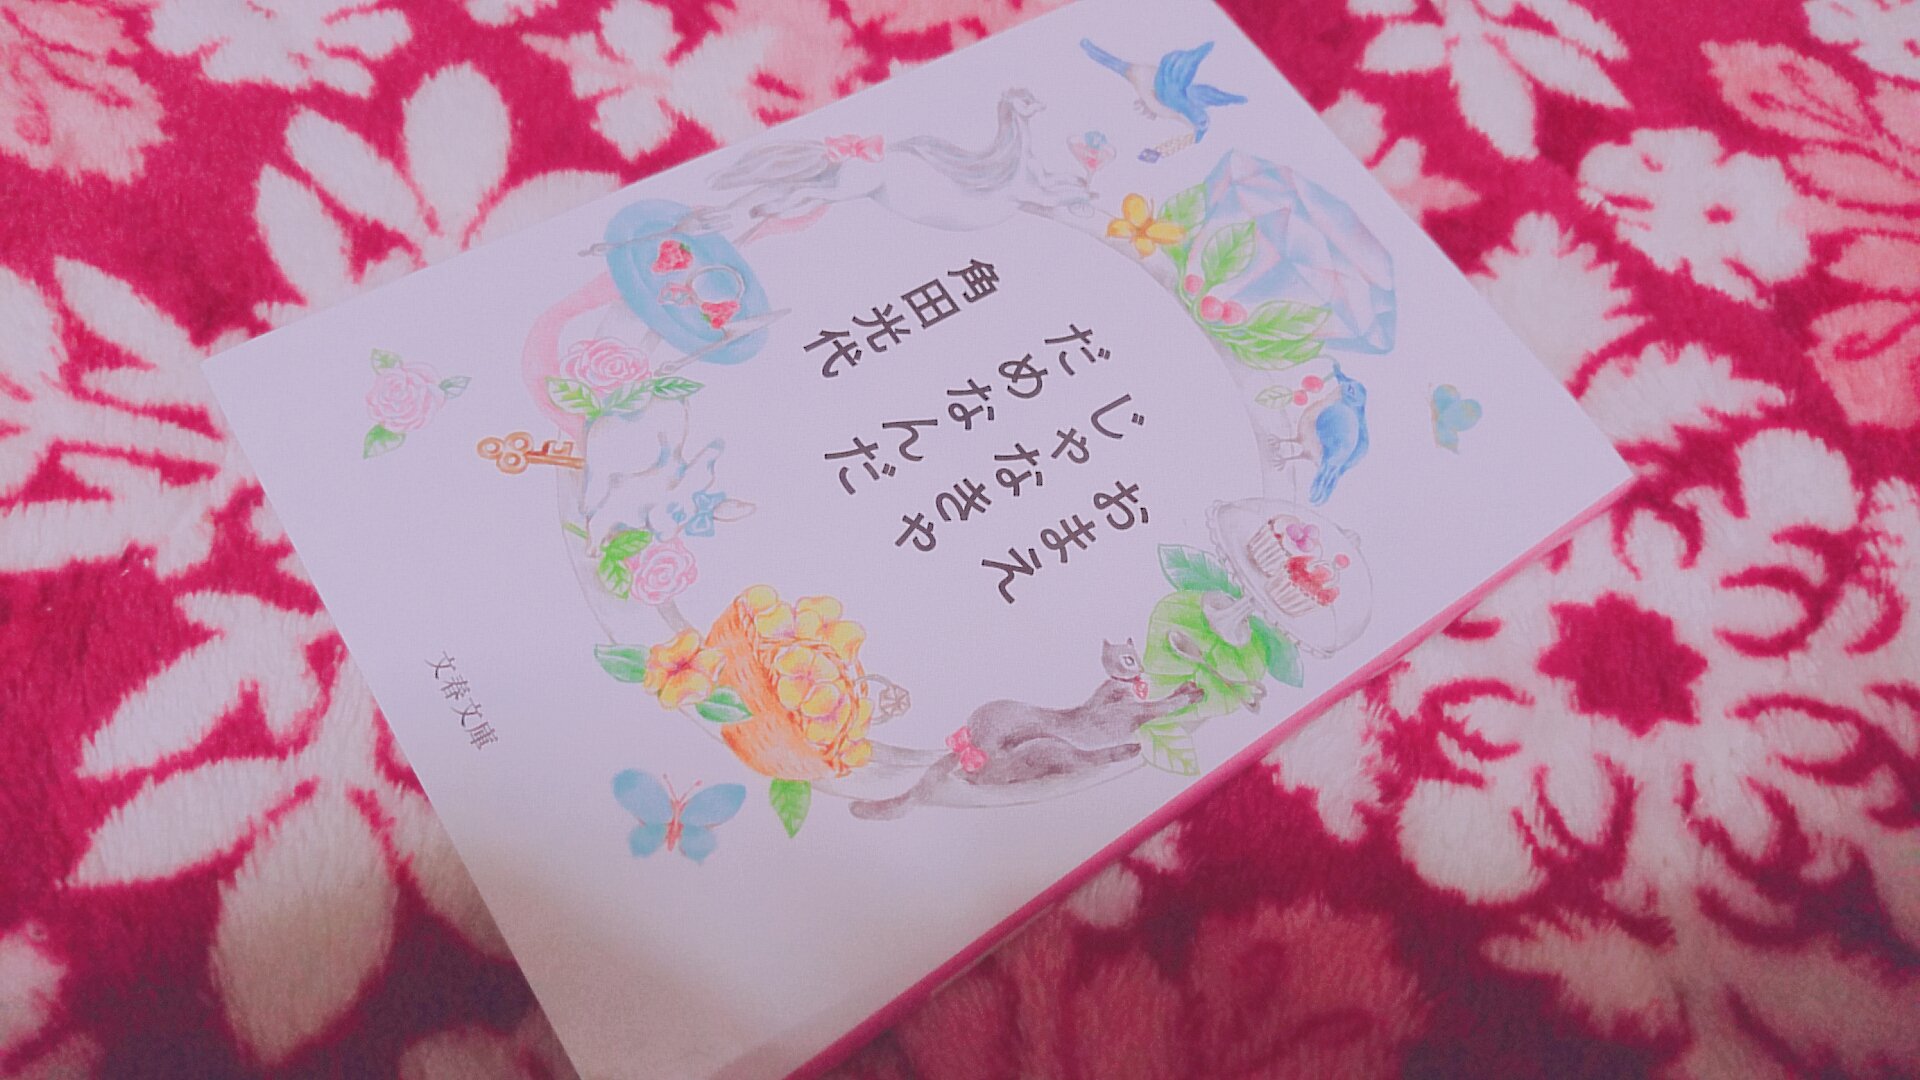 おまえ
じゃなきゃ
だめなんだ
角田光代
文春文庫